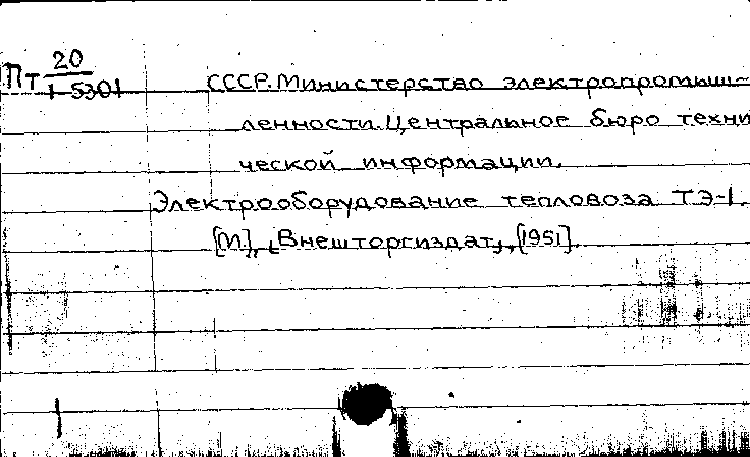 Пт 20
1-5301
СССР. Министерство электропромыш-
ленности. Центральное бюро техни
ческой информации.
Электрооборудование тепловоза ТЭ-1.
[М], "Внешторгиздат", [1951].